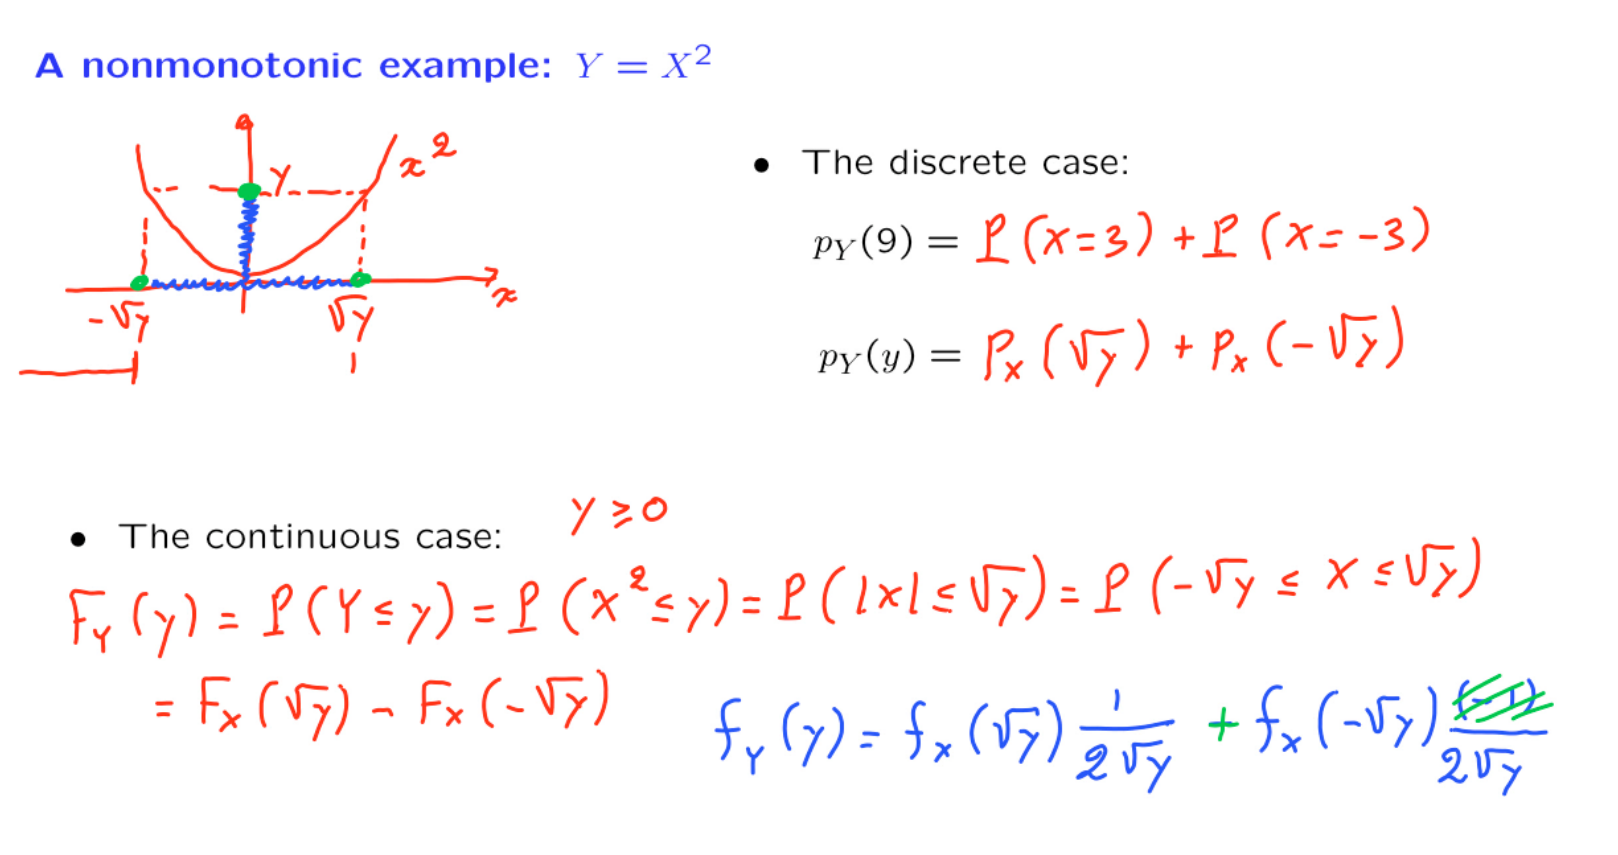 A nonmonotonic example: Y = X²
x²
y
x
-√y
√y
• The discrete case:
p_Y(9) = P(X=3) + P(X=-3)
p_Y(y) = P_X(√y) + P_X(-√y)
• The continuous case: y ≥ 0
F_Y(y) = P(Y≤y) = P(X²≤y) = P(|X|≤√y) = P(-√y ≤ X ≤ √y)
= F_X(√y) - F_X(-√y)
f_Y(y) = f_X(√y) 1/(2√y) + f_X(-√y) (-1)/(2√y)